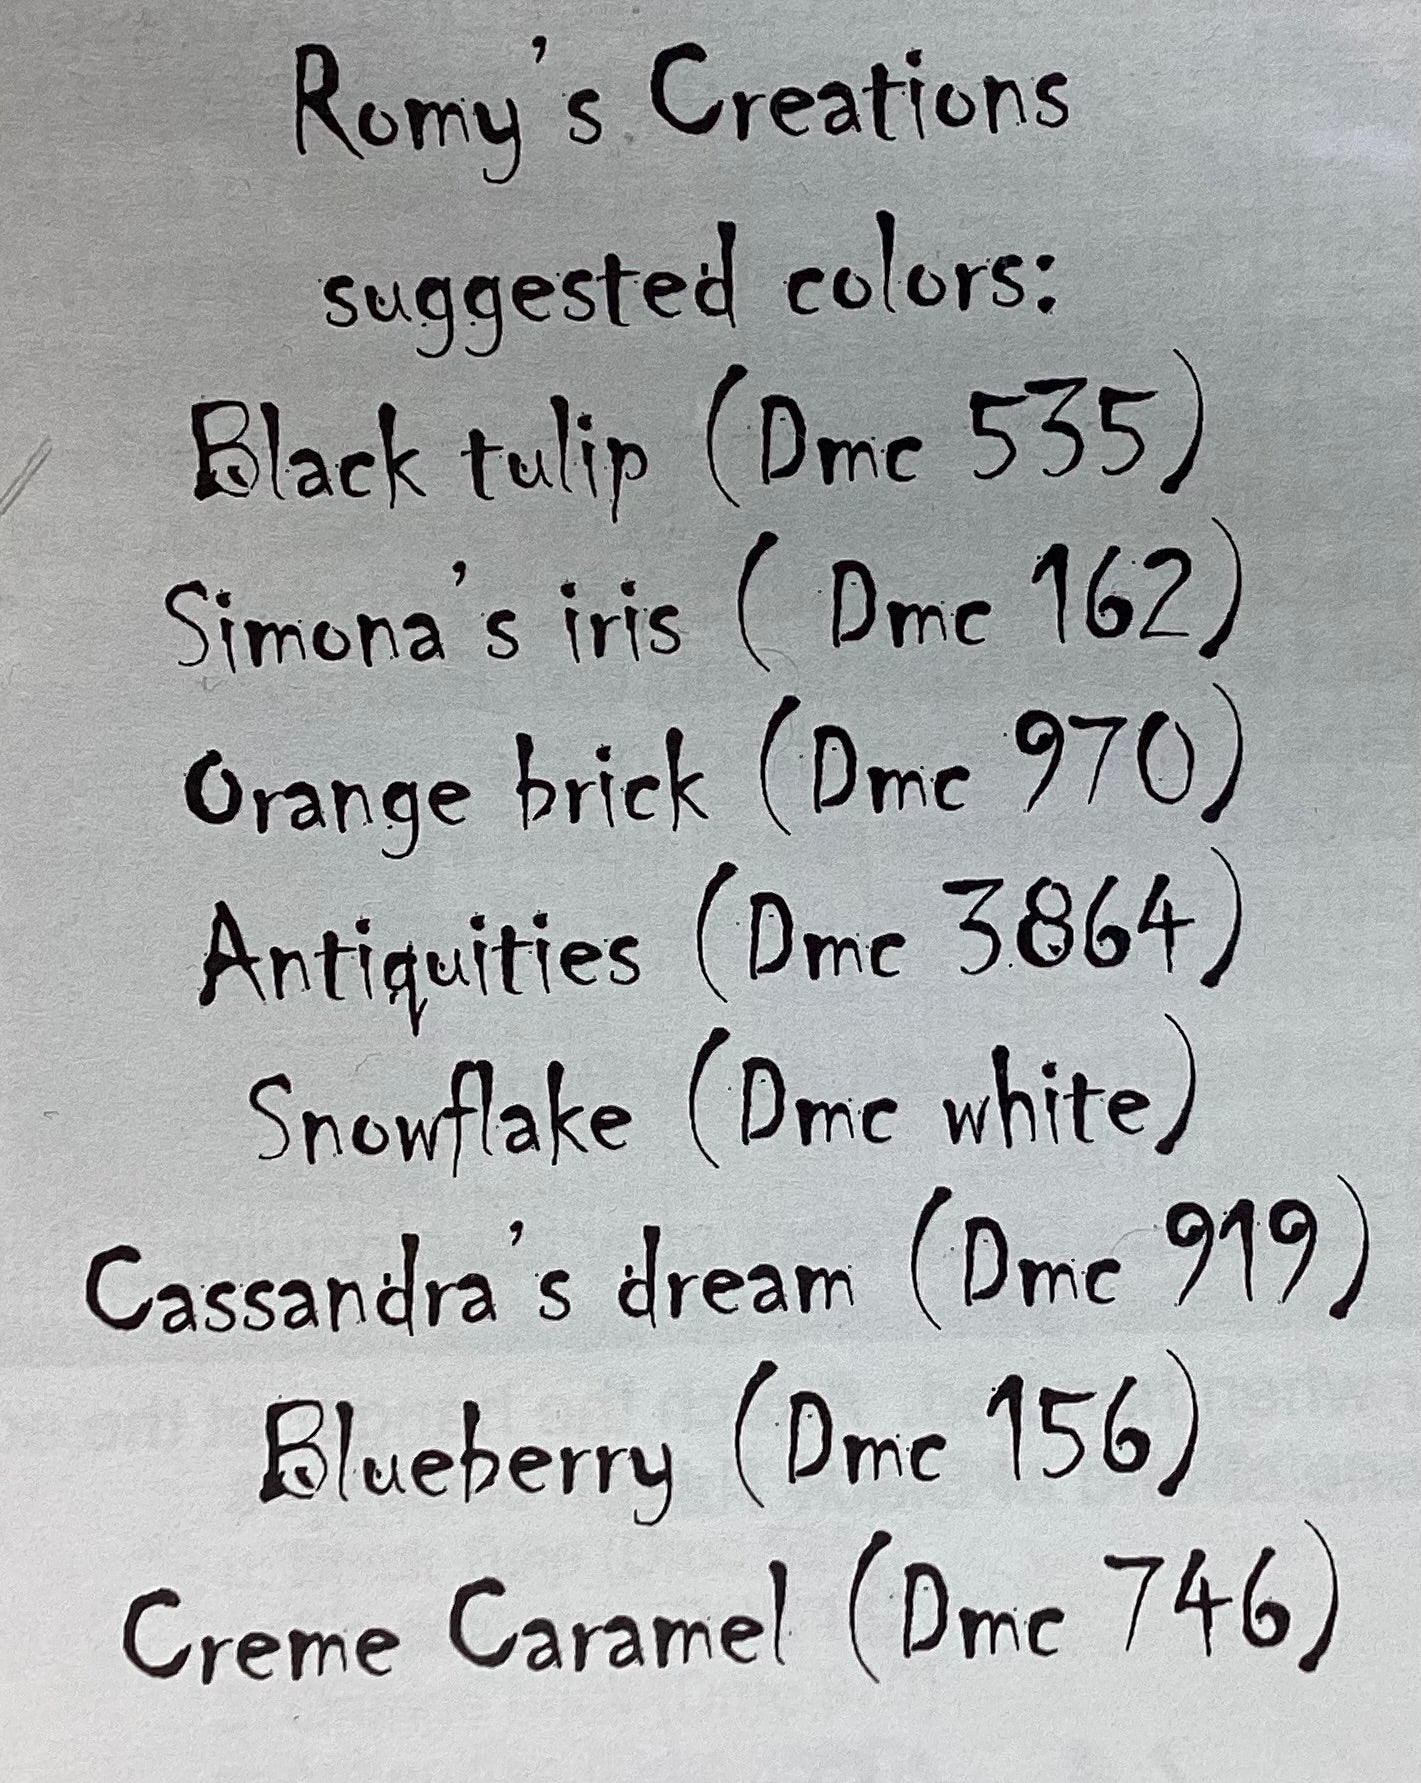 Romy's Creations
suggested colors:
Black tulip (Dmc 535)
Simona's iris ( Dmc 162)
Orange brick (Dmc 970)
Antiquities (Dmc 3864)
Snowflake (Dmc white)
Cassandra's dream (Dmc 919)
Blueberry (Dmc 156)
Creme Caramel (Dmc 746)